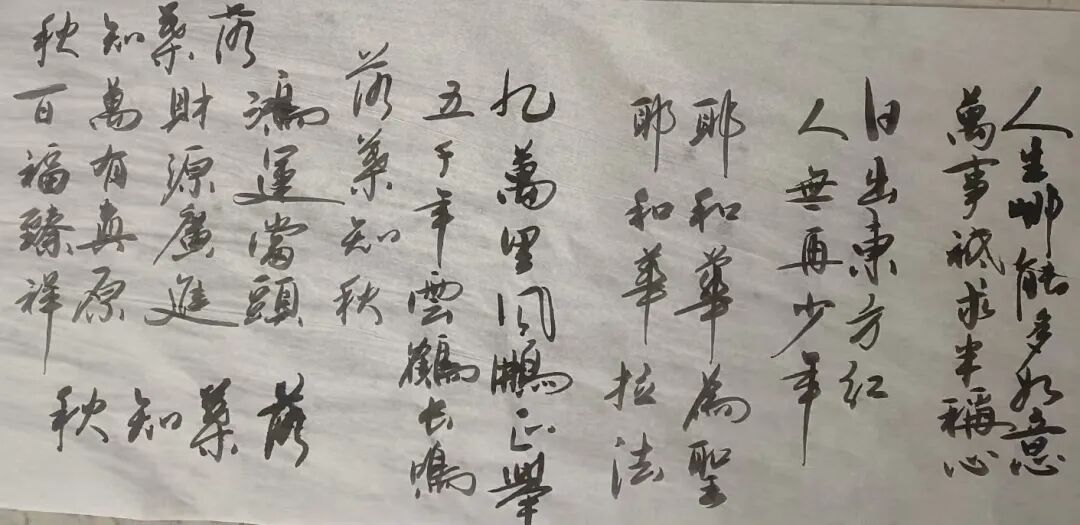 人生哪能多如意
萬事祗求半稱心
日出東方紅
人無再少年
耶和華為聖
耶和華拉法
九萬里風鵬正舉
五千年雲鶴長鳴
落葉知秋
鴻運當頭
財源廣進
萬有真原
百福臻祥
落葉知秋
落葉知秋